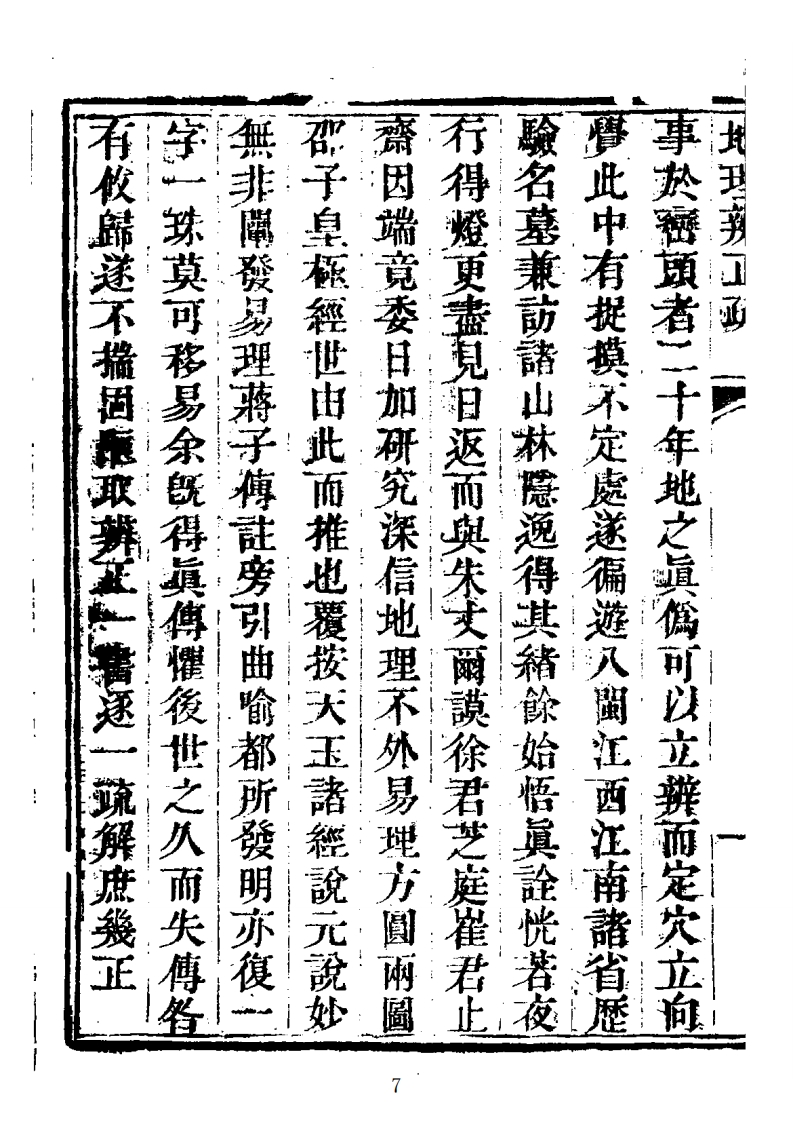 地理辨正疏
一
事於巒頭者二十年地之眞僞可以立辨而定穴立向
覺此中有捉摸不定處遂徧遊八閩江西江南諸省歷
驗名墓兼訪諸山林隱逸得其緒餘始悟眞詮恍若夜
行得燈更盡見日返而與朱丈爾謨徐君芝庭崔君止
齋因端竟委日加研究深信地理不外易理方圓兩圖
邵子皇極經世由此而推也覆按天玉諸經說元說妙
無非闡發易理蔣子傳註旁引曲喻都所發明亦復一
字一珠莫可移易余旣得眞傳懼後世之久而失傳咎
有攸歸遂不揣固陋取辨正一書逐一疏解庶幾正
7